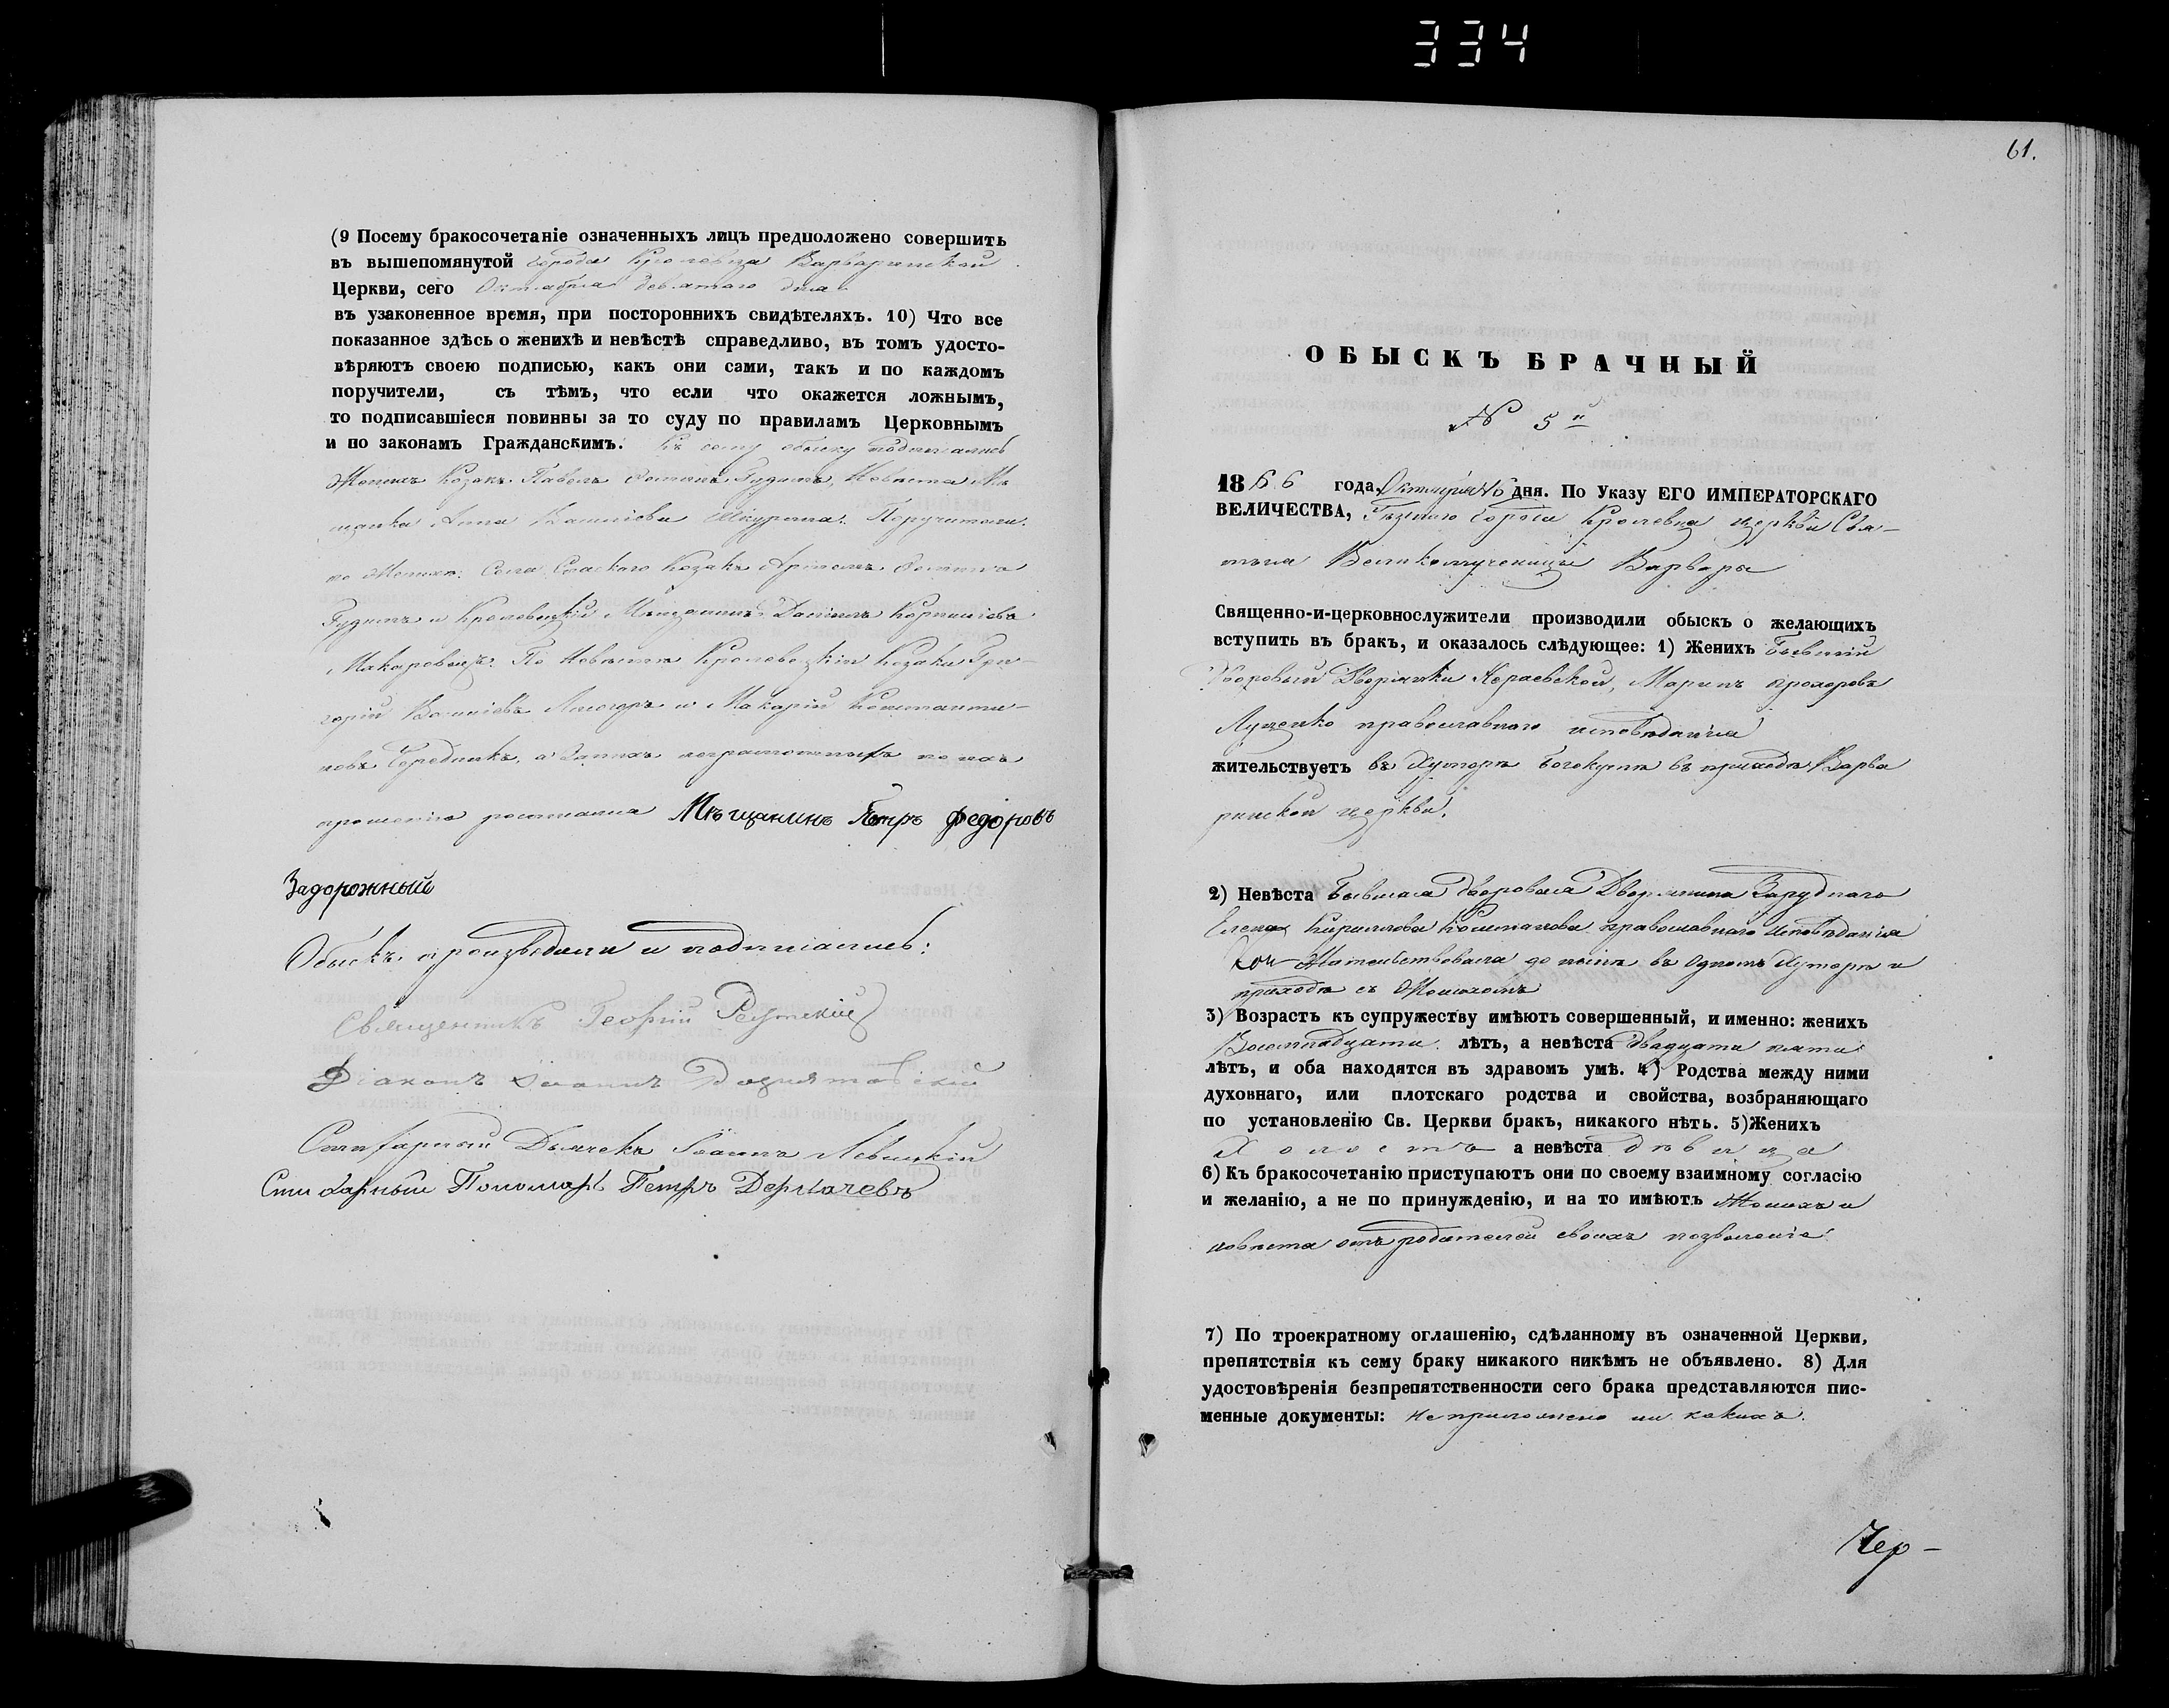 334
(9 Посему бракосочетаніе означенныхъ лицъ предположено совершить
въ вышепомянутой города Кролевца Варваринской
Церкви, сего Октября девятаго дня
въ узаконенное время, при постороннихъ свидѣтеляхъ. 10) Что все
показанное здѣсь о женихѣ и невѣстѣ справедливо, въ томъ удосто-
вѣряютъ своею подписью, какъ они сами, такъ и по каждомъ
поручители, съ тѣмъ, что если что окажется ложнымъ,
то подписавшіеся повинны за то суду по правиламъ Церковнымъ
и по законамъ Гражданскимъ. Къ сему обыску подписались
Женихъ Козакъ Павелъ Невѣста Мѣ
щанка Анна Василіева Поручители:
по Женихѣ: Села Спаскаго Козакъ
и Кролевецкій Мѣщанинъ Даніилъ Корниліевъ
Макаровецъ. По Невѣстѣ Кролевецкіи Козаки Гри-
горій Василіевъ и Макарій Константи-
новъ Середникъ, а за нихъ неграмотныхъ по ихъ
прошенію росписался Мѣщанинъ Петръ Федоровъ
Задорожный
Обыскъ производили и подписались:
Священникъ Георгій
Діаконъ Іоаннъ
Стихарный Дьячекъ Іоаннъ Левицкій
Стихарный Пономарь Петръ Деркачевъ
61.
ОБЫСКЪ БРАЧНЫЙ
№ 5й
1866 года, Октября 16 дня. По Указу ЕГО ИМПЕРАТОРСКАГО
ВЕЛИЧЕСТВА, города Кролевца церкви Свя-
тыя Великомученицы Варвары
Священно-и-церковнослужители производили обыскъ о желающихъ
вступить въ бракъ, и оказалось слѣдующее: 1) Женихъ Бывшій
Дворовый Дворянки Прохоровъ
Луценко православнаго исповѣданія
жительствуетъ въ Хуторѣ въ приходѣ Варва
ринской церкви.
2) Невѣста Бывшая дворовая Дворянина Заруднаго
Елена Кириллова православнаго исповѣданія
Жительствовала до нынѣ въ одномъ Хуторѣ и
приходѣ съ Женихомъ
3) Возрастъ къ супружеству имѣютъ совершенный, и именно: женихъ
лѣтъ, а невѣста двадцати пяти
лѣтъ, и оба находятся въ здравомъ умѣ. 4) Родства между ними
духовнаго, или плотскаго родства и свойства, возбраняющаго
по установленію Св. Церкви бракъ, никакого нѣтъ. 5) Женихъ
Холостъ а невѣста дѣвица
6) Къ бракосочетанію приступаютъ они по своему взаимному согласію
и желанію, а не по принужденію, и на то имѣютъ Женихъ и
невѣста отъ родителей своихъ позволеніе.
7) По троекратному оглашенію, сдѣланному въ означенной Церкви,
препятствія къ сему браку никакого никѣмъ не объявлено. 8) Для
удостовѣренія безпрепятственности сего брака представляются пис-
менные документы: Не приложено ни какихъ.
Чер-